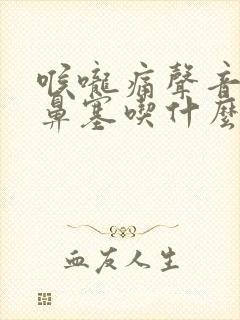 喉嚨痛聲音
鼻塞喫什麼
血友人生